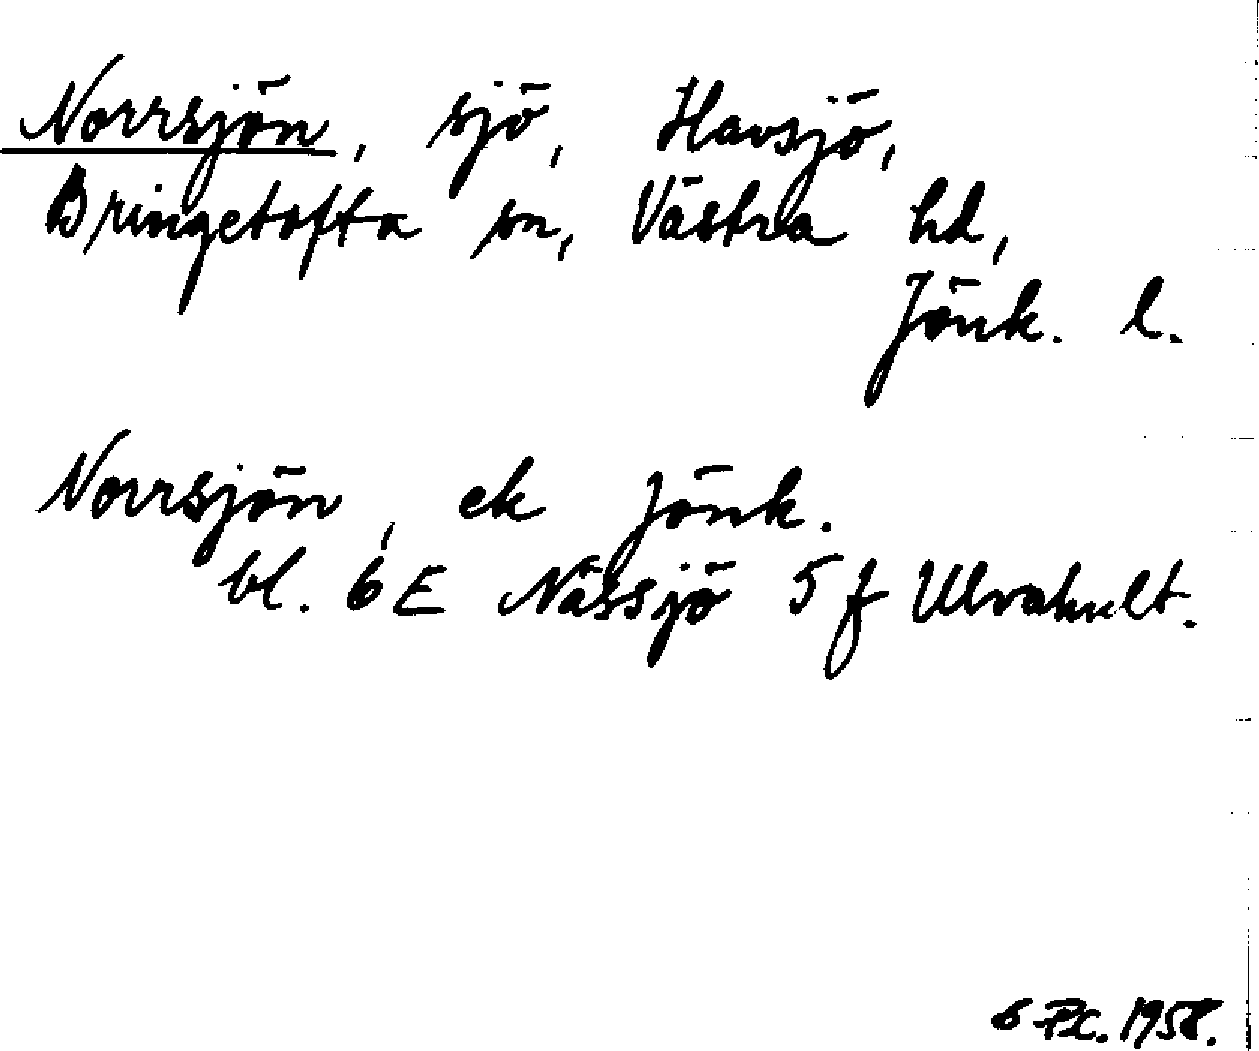 Norrsjön, sjö, Havsjö,
Bringetofta sn, Västra hd,
Jönk. l.
Norrsjön, ek Jönk.
bl. 6E Nässjö 5f Ulvahult.
1958.